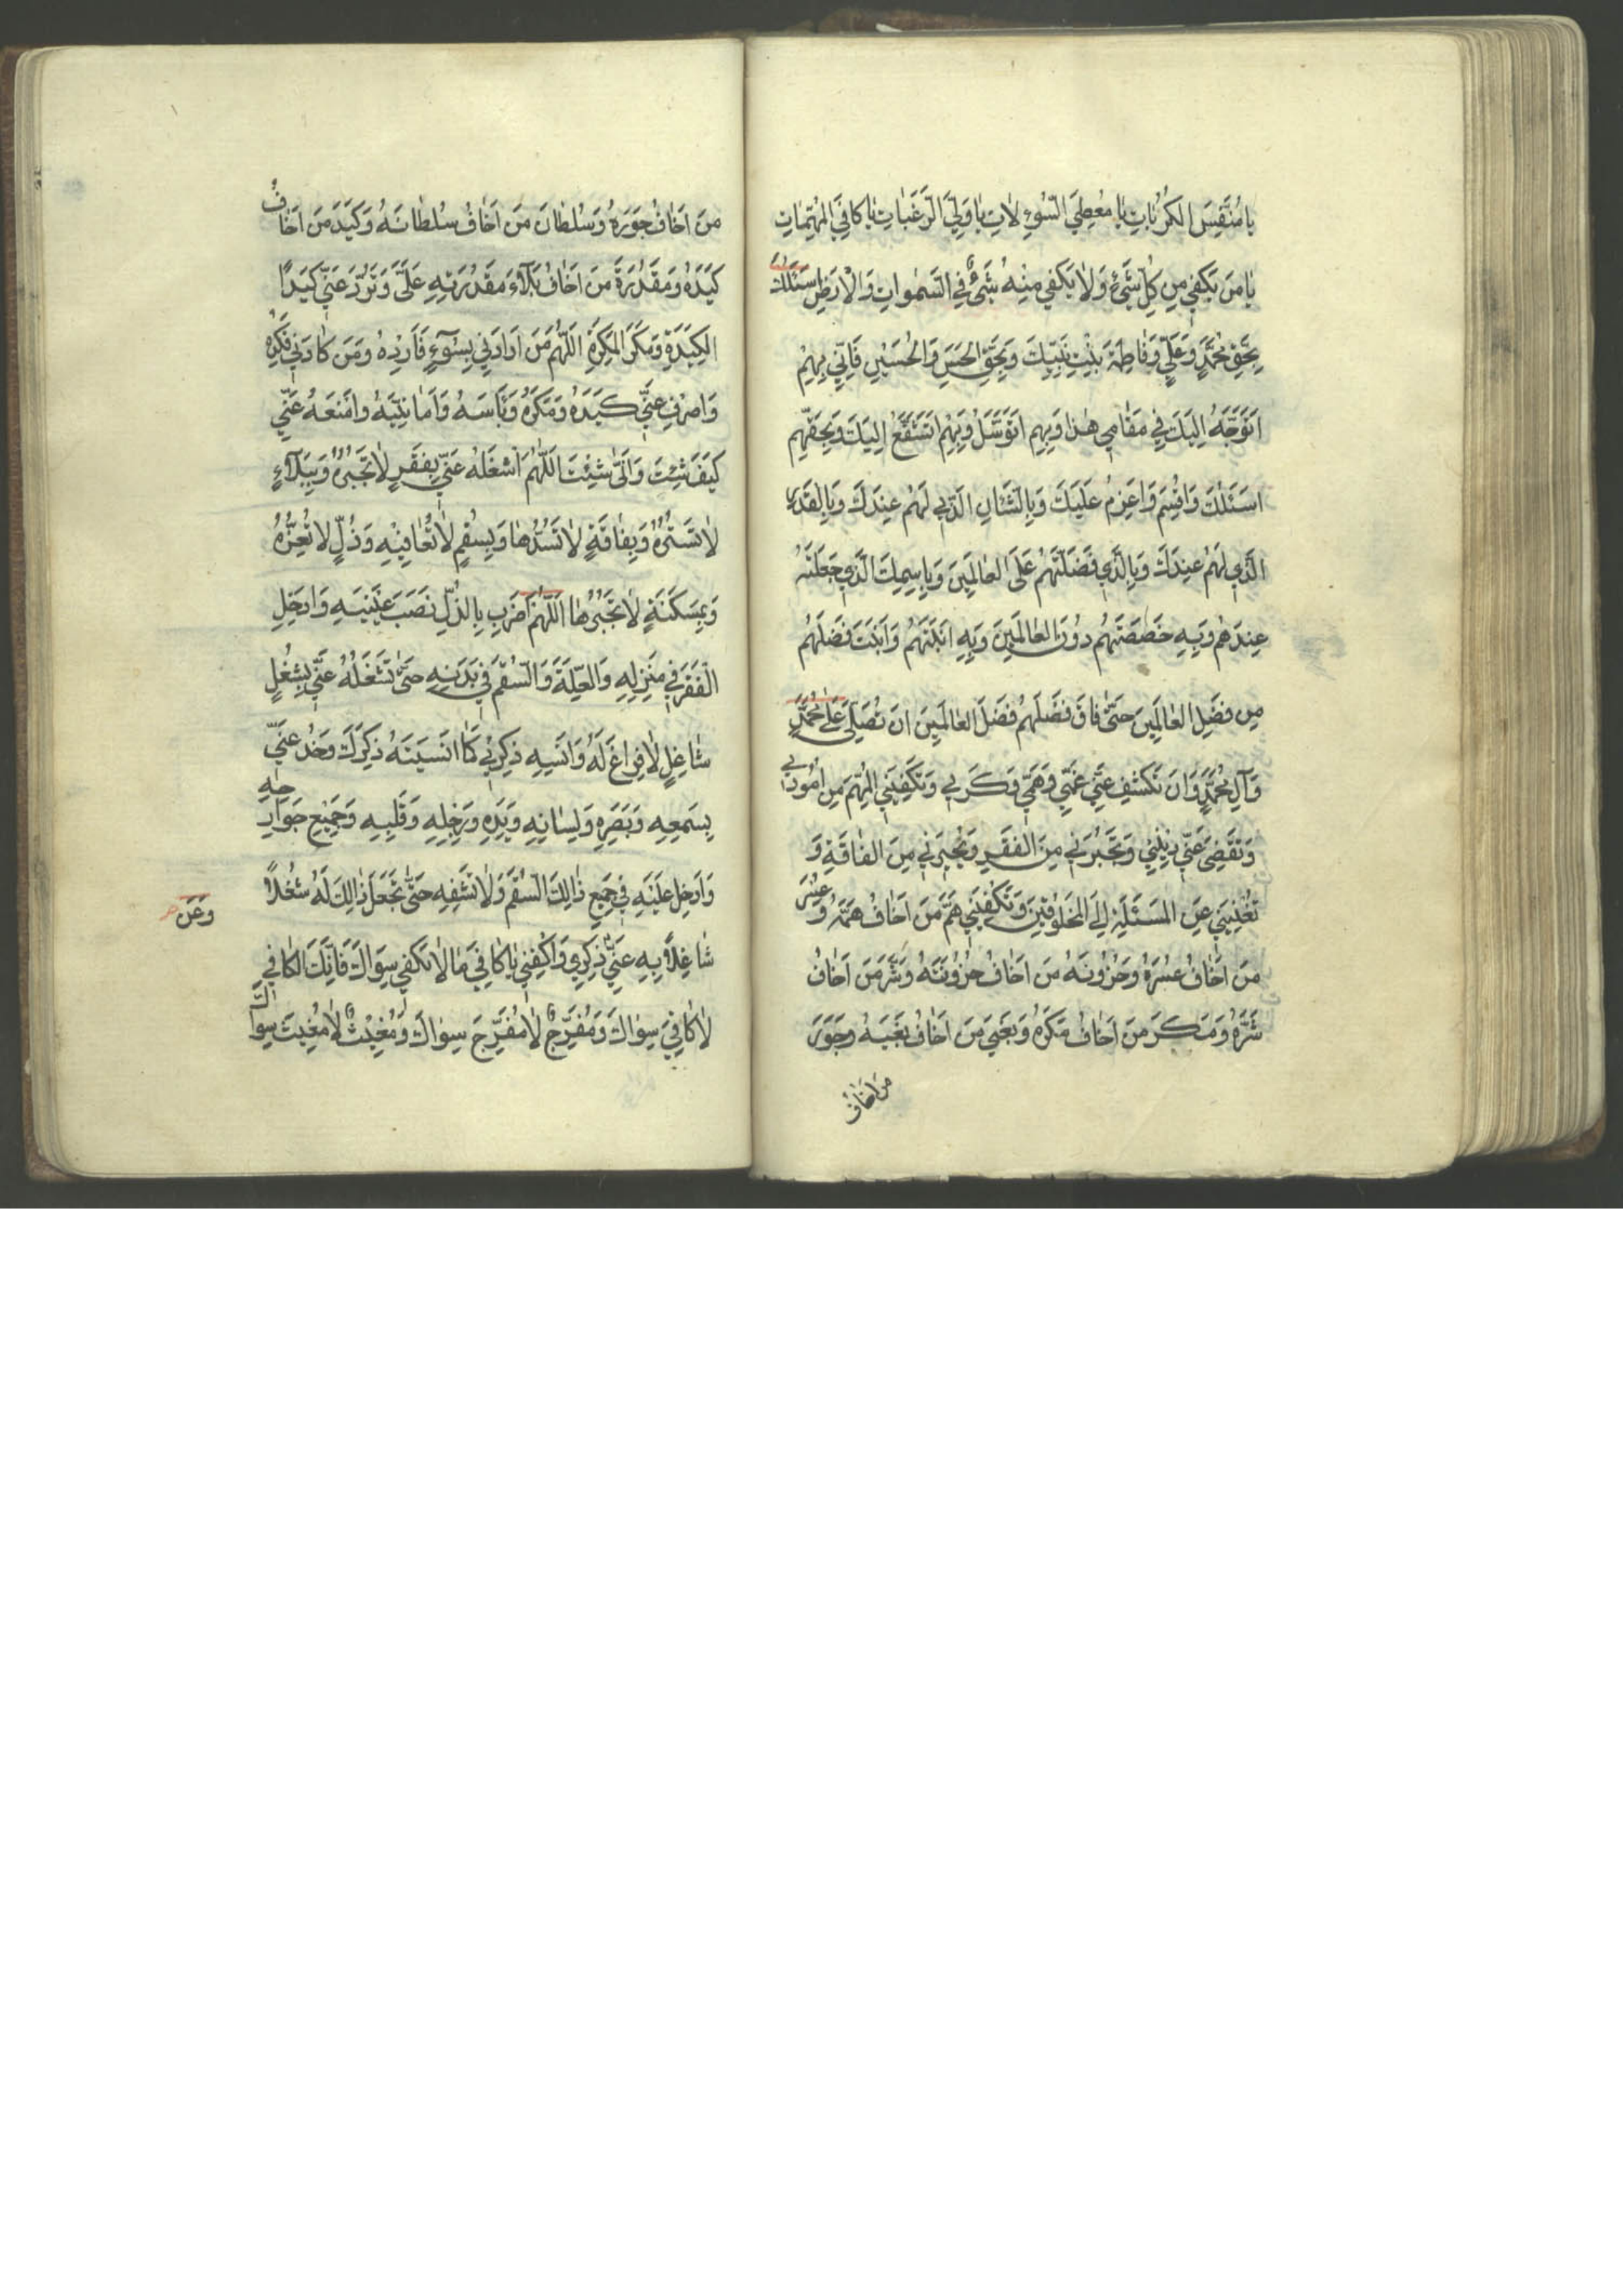 يا مُنَفِّسَ الكُرُباتِ يا مُعطِيَ السُّوءِلاتِ يا وَلِيَّ الرَّغَباتِ يا كافِيَ المُهِمّاتِ
يا مَن يَكفي مِن كُلِّ شَيْءٍ وَلا يَكفي مِنهُ شَيْءٌ فِي السَّمواتِ وَالاَرضِ اَسئَلُكَ
بِحَقِّ مُحَمَّدٍ وَعَلِيٍّ وَفاطِمَةَ بِنتِ نَبِيِّكَ وَبِحَقِّ الحَسَنِ وَالحُسَينِ فَاِنّي بِهِم
اَتَوَجَّهُ اِلَيكَ في مَقامي هذا وَبِهِم اَتَوَسَّلُ وَبِهِم اَتَشَفَّعُ اِلَيكَ وَبِحَقِّهِم
اَسئَلُكَ وَاُقسِمُ وَاَعزِمُ عَلَيكَ وَبِالشَّأنِ الَّذي لَهُم عِندَكَ وَبِالقَدرِ
الَّذي لَهُم عِندَكَ وَبِالَّذي فَضَّلتَهُم عَلَى العالَمينَ وَبِاسمِكَ الَّذي جَعَلتَهُ
عِندَهُم وَبِهِ خَصَصتَهُم دُونَ العالَمينَ وَبِهِ اَبَنتَهُم وَاَبَنتَ فَضلَهُم
مِن فَضلِ العالَمينَ حَتّى فاقَ فَضلُهُم فَضلَ العالَمينَ اَن تُصَلِّيَ عَلى مُحَمَّدٍ
وَآلِ مُحَمَّدٍ وَاَن تَكشِفَ عَنّي غَمّي وَهَمّي وَكَربي وَتَكفِيَنِي المُهِمَّ مِن اُمُوري
وَتَقضِيَ عَنّي دَيني وَتَجبُرَني مِنَ الفَقرِ وَتُجيرَني مِنَ الفاقَةِ وَ
تُغنِيَني عَنِ المَسئَلَةِ اِلَى المَخلُوقينَ وَتَكفِيَني هَمَّ مَن اَخافُ هَمَّهُ وَعُسرَ
مَن اَخافُ عُسرَهُ وَحُزُونَةَ مَن اَخافُ حُزُونَتَهُ وَشَرَّ مَن اَخافُ
شَرَّهُ وَمَكرَ مَن اَخافُ مَكرَهُ وَبَغيَ مَن اَخافُ بَغيَهُ وَجَورَ
مَن اَخافُ
مَن اَخافُ جَورَهُ وَسُلطانَ مَن اَخافُ سُلطانَهُ وَكَيدَ مَن اَخافُ
كَيدَهُ وَمَقدُرَةَ مَن اَخافُ بَلاءَ مَقدُرَتِهِ عَلَيَّ وَتَرُدَّ عَنّي كَيدَ
الكَيَدَةِ وَمَكرَ المَكَرَةِ اَللّهُمَّ مَن اَرادَني بِسُوءٍ فَاَرِدهُ وَمَن كادَني فَكِدهُ
وَاصرِف عَنّي كَيدَهُ وَمَكرَهُ وَبَأسَهُ وَاَمانِيَّهُ وَامنَعهُ عَنّي
كَيفَ شِئتَ وَاَنّى شِئتَ اَللّهُمَّ اشغَلهُ عَنّي بِفَقرٍ لا تَجبُرُهُ وَبِبَلاءٍ
لا تَستُرُهُ وَبِفاقَةٍ لا تَسُدُّها وَبِسُقمٍ لا تُعافيهِ وَذُلٍّ لا تُعِزُّهُ
وَبِمَسكَنَةٍ لا تَجبُرُها اَللّهُمَّ اضرِب بِالذُّلِّ نَصبَ عَينَيهِ وَاَدخِل
الفَقرَ في مَنزِلِهِ وَالعِلَّةَ وَالسُّقمَ في بَدَنِهِ حَتّى تَشغَلَهُ عَنّي بِشُغلٍ
شاغِلٍ لا فَراغَ لَهُ وَاَنسِهِ ذِكري كَما اَنسَيتَهُ ذِكرَكَ وَخُذ عَنّي
بِسَمعِهِ وَبَصَرِهِ وَلِسانِهِ وَيَدِهِ وَرِجلِهِ وَقَلبِهِ وَجَميعِ جَوارِحِهِ
وَاَدخِل عَلَيهِ في جَميعِ ذلِكَ السُّقمَ وَلا تَشفِهِ حَتّى تَجعَلَ ذلِكَ لَهُ شُغلاً
وَعَن
شاغِلاً بِهِ عَنّي ذِكري وَاكفِني يا كافِيَ ما لا يَكفي سِواكَ فَاِنَّكَ الكافي
لا كافِيَ سِواكَ وَمُفَرِّجٌ لا مُفَرِّجَ سِواكَ وَمُغيثٌ لا مُغيثَ سِواكَ